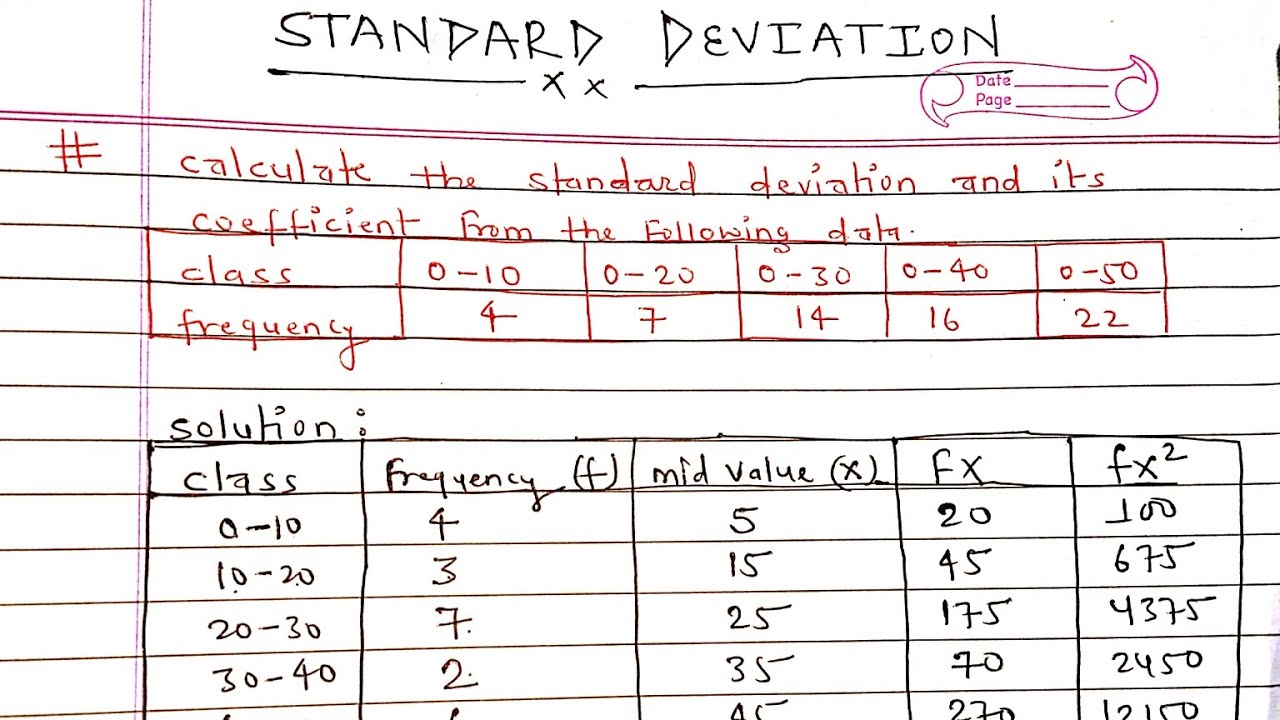 STANDARD DEVIATION
x x
Date
Page
# calculate the standard deviation and its
coefficient from the following data.
class 0-10 0-20 0-30 0-40 0-50
frequency 4 7 14 16 22
solution:
class frequency (f) mid value (x) FX fx²
0-10 4 5 20 100
10-20 3 15 45 675
20-30 7 25 175 4375
30-40 2 35 70 2450
45 270 12150